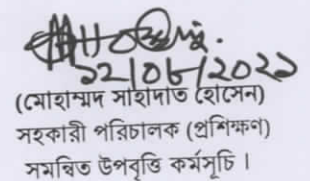 ১২/০৮/২০২১
(মোহাম্মদ সাহাদাত হোসেন)
সহকারী পরিচালক (প্রশিক্ষণ)
সমন্বিত উপবৃত্তি কর্মসূচি ।